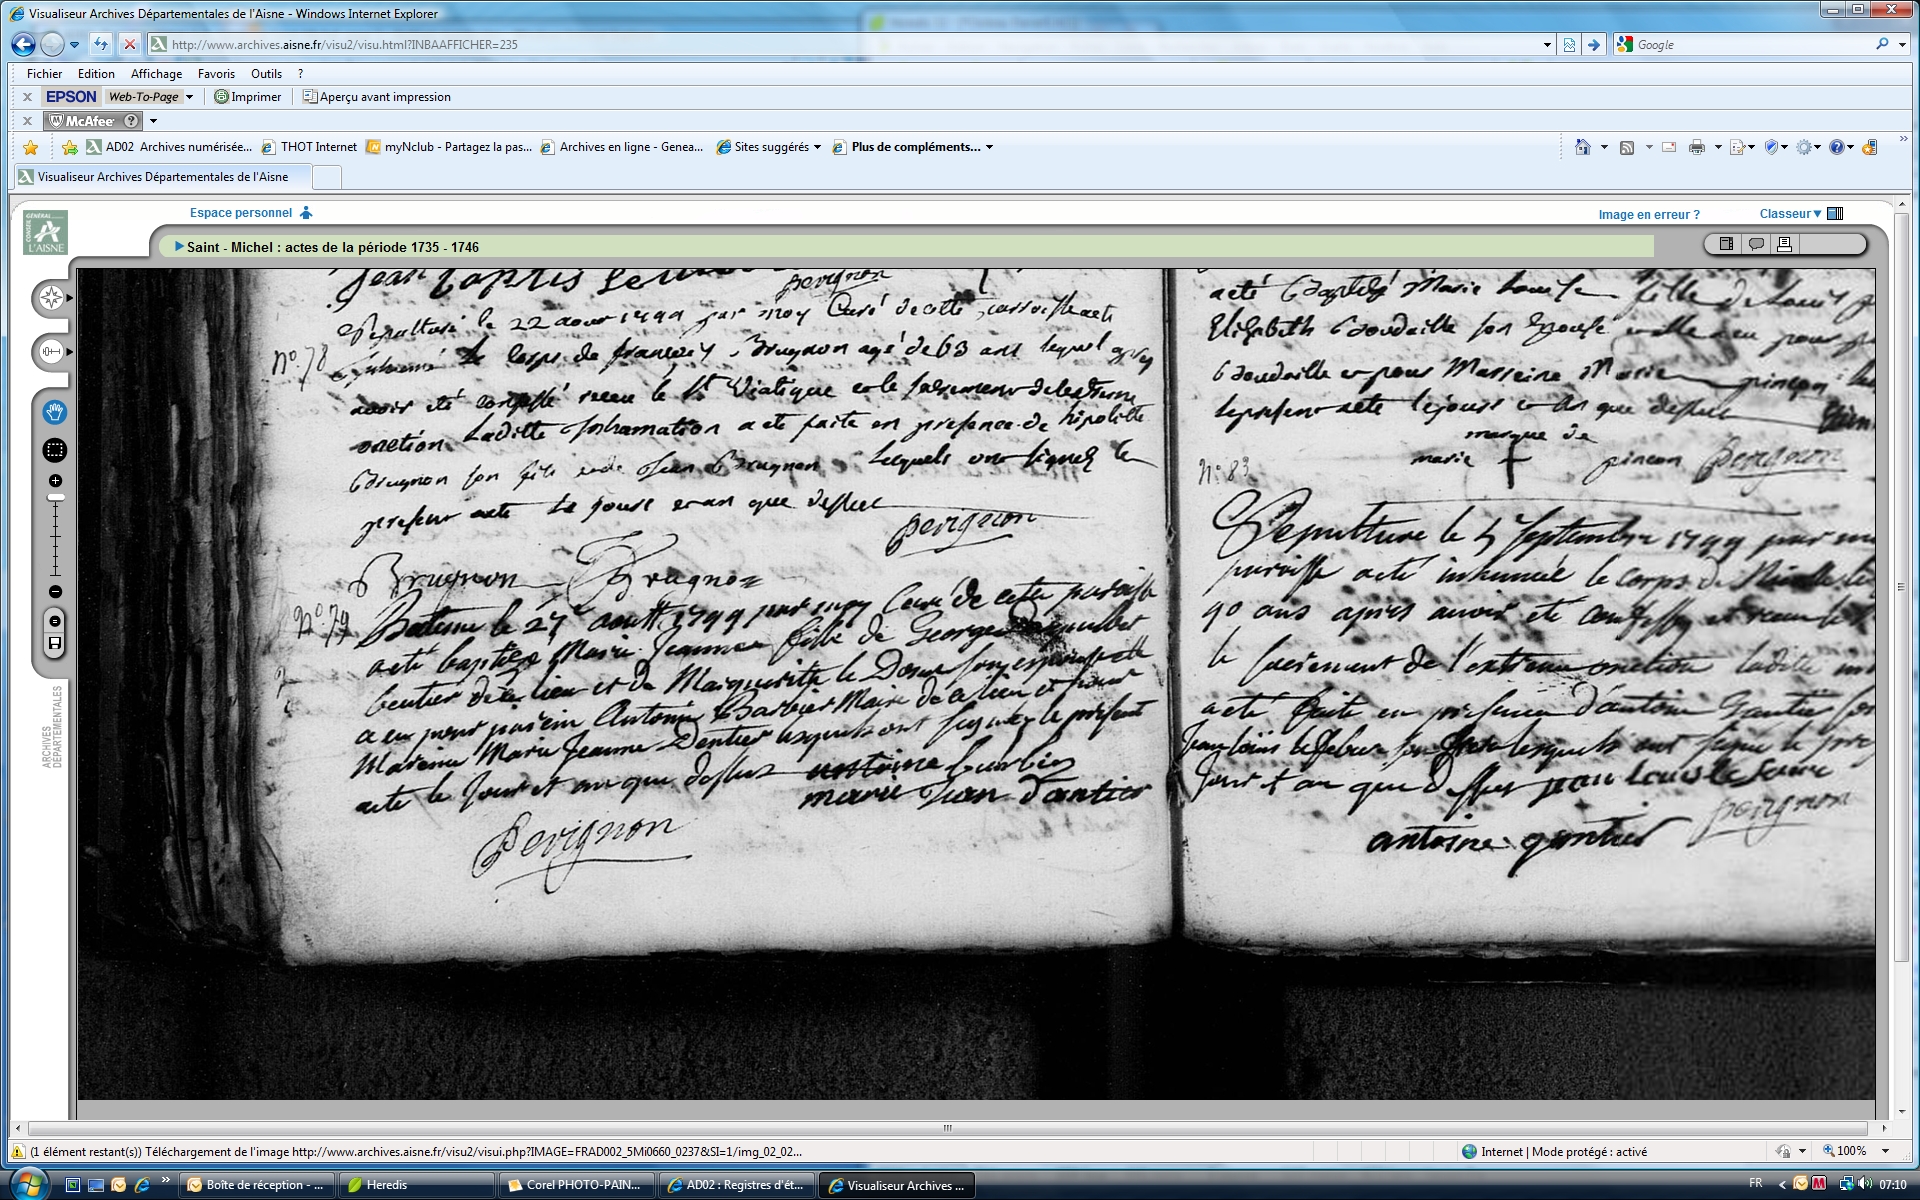 Visualiseur Archives Départementales de l'Aisne - Windows Internet Explorer
http://www.archives.aisne.fr/visu2/visu.html?INBAAFFICHER=235
Google
Fichier Edition Affichage Favoris Outils ?
x EPSON Web-To-Page Imprimer Aperçu avant impression
x McAfee ?
AD02 Archives numérisée... THOT Internet myNclub - Partagez la pas... Archives en ligne - Genea... Sites suggérés Plus de compléments...
Visualiseur Archives Départementales de l'Aisne
Espace personnel
Image en erreur ? Classeur
CONSEIL GÉNÉRAL L'AISNE
Saint - Michel : actes de la période 1735 - 1746
ARCHIVES DÉPARTEMENTALES
Jean Baptis
Pevignon
Sepulture le 22 aout 1744 par moy Curé de cette parroisse acté
N° 78
inhumé le corps de françois Brugnon agé de 63 ans lequel apres
avoir été confessé receu le St Viatique et le sacrement de lextreme
onction Laditte Inhumation a ete faite en presence de hipolitte
Brugnon son fils et de Jean Brugnon lesquels ont signez le
present acte le jour et an que dessus
Pevignon
Brugnon Brugnon
N° 79
Bateme le 27 aoust 1744 par moy Curé de cette paroisse
acté baptizé Marie Jeanne fille de George
de ce lieu et de Marguerite le son espouse elle
a eu pour parein Antoine Barbier Maire de ce lieu et pour
Mareine Marie Jeanne Dentier lesquels ont signez le présent
acte le Jour et an que dessus antoine barbier
marie Jean dantier
Pevignon
acté Baptisé Marie Louise fille de Louis
Elisabeth Boudaille son Epouse elle a eu pour
Boudaille et pour Marreine Marie pinçon
le present acte le jour et an que dessus
marque de
marie pincon Pevignon
N° 83
Sepulture le 5 Septembre 1744 par
paroisse acté inhumée le corps de
90 ans après avoir eté confessé et receu le
le sacrement de l'extreme onction ladite
acté faite en presence d'antoine Gautier
Jean Louis le febvre son lesquels ont signé le
Jour et an que dessus jean Louis le feivre
Pevignon
antoine gautier
(1 élément restant(s)) Téléchargement de l'image http://www.archives.aisne.fr/visu2/visui.php?IMAGE=FRAD002_5Mi0660_0237&SI=1/img_02_02...
Internet | Mode protégé : activé
100%
Boîte de réception - ... Heredis Corel PHOTO-PAIN... AD02 : Registres d'ét... Visualiseur Archives ...
FR 07:10